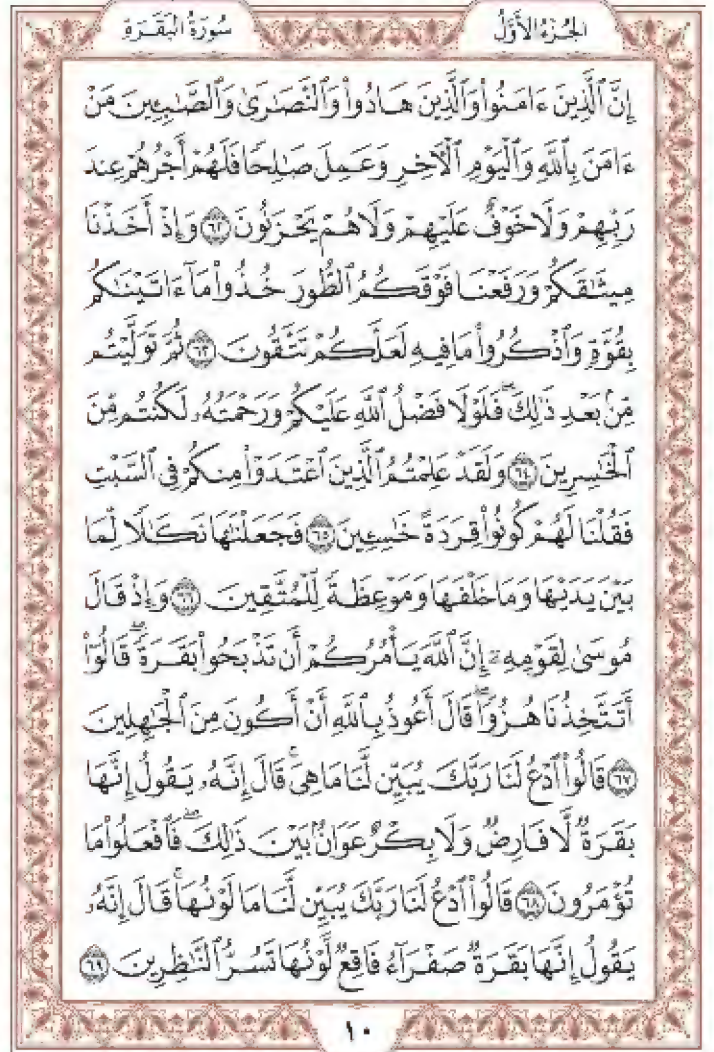 الجُزءُ الأَوَّلُ
سُورَةُ البَقَرَةِ
إِنَّ ٱلَّذِينَ ءَامَنُوا۟ وَٱلَّذِينَ هَادُوا۟ وَٱلنَّصَـٰرَىٰ وَٱلصَّـٰبِـِٔينَ مَنْ
ءَامَنَ بِٱللَّهِ وَٱلْيَوْمِ ٱلْـَٔاخِرِ وَعَمِلَ صَـٰلِحًا فَلَهُمْ أَجْرُهُمْ عِندَ
رَبِّهِمْ وَلَا خَوْفٌ عَلَيْهِمْ وَلَا هُمْ يَحْزَنُونَ ٦٢ وَإِذْ أَخَذْنَا
مِيثَـٰقَكُمْ وَرَفَعْنَا فَوْقَكُمُ ٱلطُّورَ خُذُوا۟ مَآ ءَاتَيْنَـٰكُم
بِقُوَّةٍ وَٱذْكُرُوا۟ مَا فِيهِ لَعَلَّكُمْ تَتَّقُونَ ٦٣ ثُمَّ تَوَلَّيْتُم
مِّنۢ بَعْدِ ذَٰلِكَ ۖ فَلَوْلَا فَضْلُ ٱللَّهِ عَلَيْكُمْ وَرَحْمَتُهُۥ لَكُنتُم مِّنَ
ٱلْخَـٰسِرِينَ ٦٤ وَلَقَدْ عَلِمْتُمُ ٱلَّذِينَ ٱعْتَدَوْا۟ مِنكُمْ فِى ٱلسَّبْتِ
فَقُلْنَا لَهُمْ كُونُوا۟ قِرَدَةً خَـٰسِـِٔينَ ٦٥ فَجَعَلْنَـٰهَا نَكَـٰلًا لِّمَا
بَيْنَ يَدَيْهَا وَمَا خَلْفَهَا وَمَوْعِظَةً لِّلْمُتَّقِينَ ٦٦ وَإِذْ قَالَ
مُوسَىٰ لِقَوْمِهِۦٓ إِنَّ ٱللَّهَ يَأْمُرُكُمْ أَن تَذْبَحُوا۟ بَقَرَةً ۖ قَالُوٓا۟
أَتَتَّخِذُنَا هُزُوًا ۖ قَالَ أَعُوذُ بِٱللَّهِ أَنْ أَكُونَ مِنَ ٱلْجَـٰهِلِينَ
٦٧ قَالُوا۟ ٱدْعُ لَنَا رَبَّكَ يُبَيِّن لَّنَا مَا هِىَ ۚ قَالَ إِنَّهُۥ يَقُولُ إِنَّهَا
بَقَرَةٌ لَّا فَارِضٌ وَلَا بِكْرٌ عَوَانٌۢ بَيْنَ ذَٰلِكَ ۖ فَٱفْعَلُوا۟ مَا
تُؤْمَرُونَ ٦٨ قَالُوا۟ ٱدْعُ لَنَا رَبَّكَ يُبَيِّن لَّنَا مَا لَوْنُهَا ۚ قَالَ إِنَّهُۥ
يَقُولُ إِنَّهَا بَقَرَةٌ صَفْرَآءُ فَاقِعٌ لَّوْنُهَا تَسُرُّ ٱلنَّـٰظِرِينَ ٦٩
١٠